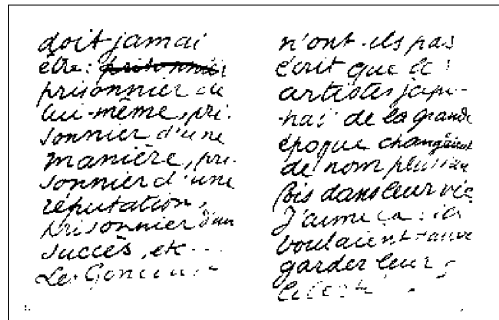 doit jamai
être:
prisonnier de
lui-même, pri-
sonnier d'une
manière, pri-
sonnier d'une
réputation,
prisonnier d'un
succès, etc...
Les Goncourt
n'ont-ils pas
écrit que les
artistes japo-
nais de la grande
époque changeaient
de nom plusieurs
fois dans leur vie.
J'aime ça: ils
voulaient sauve
garder leur
liberté